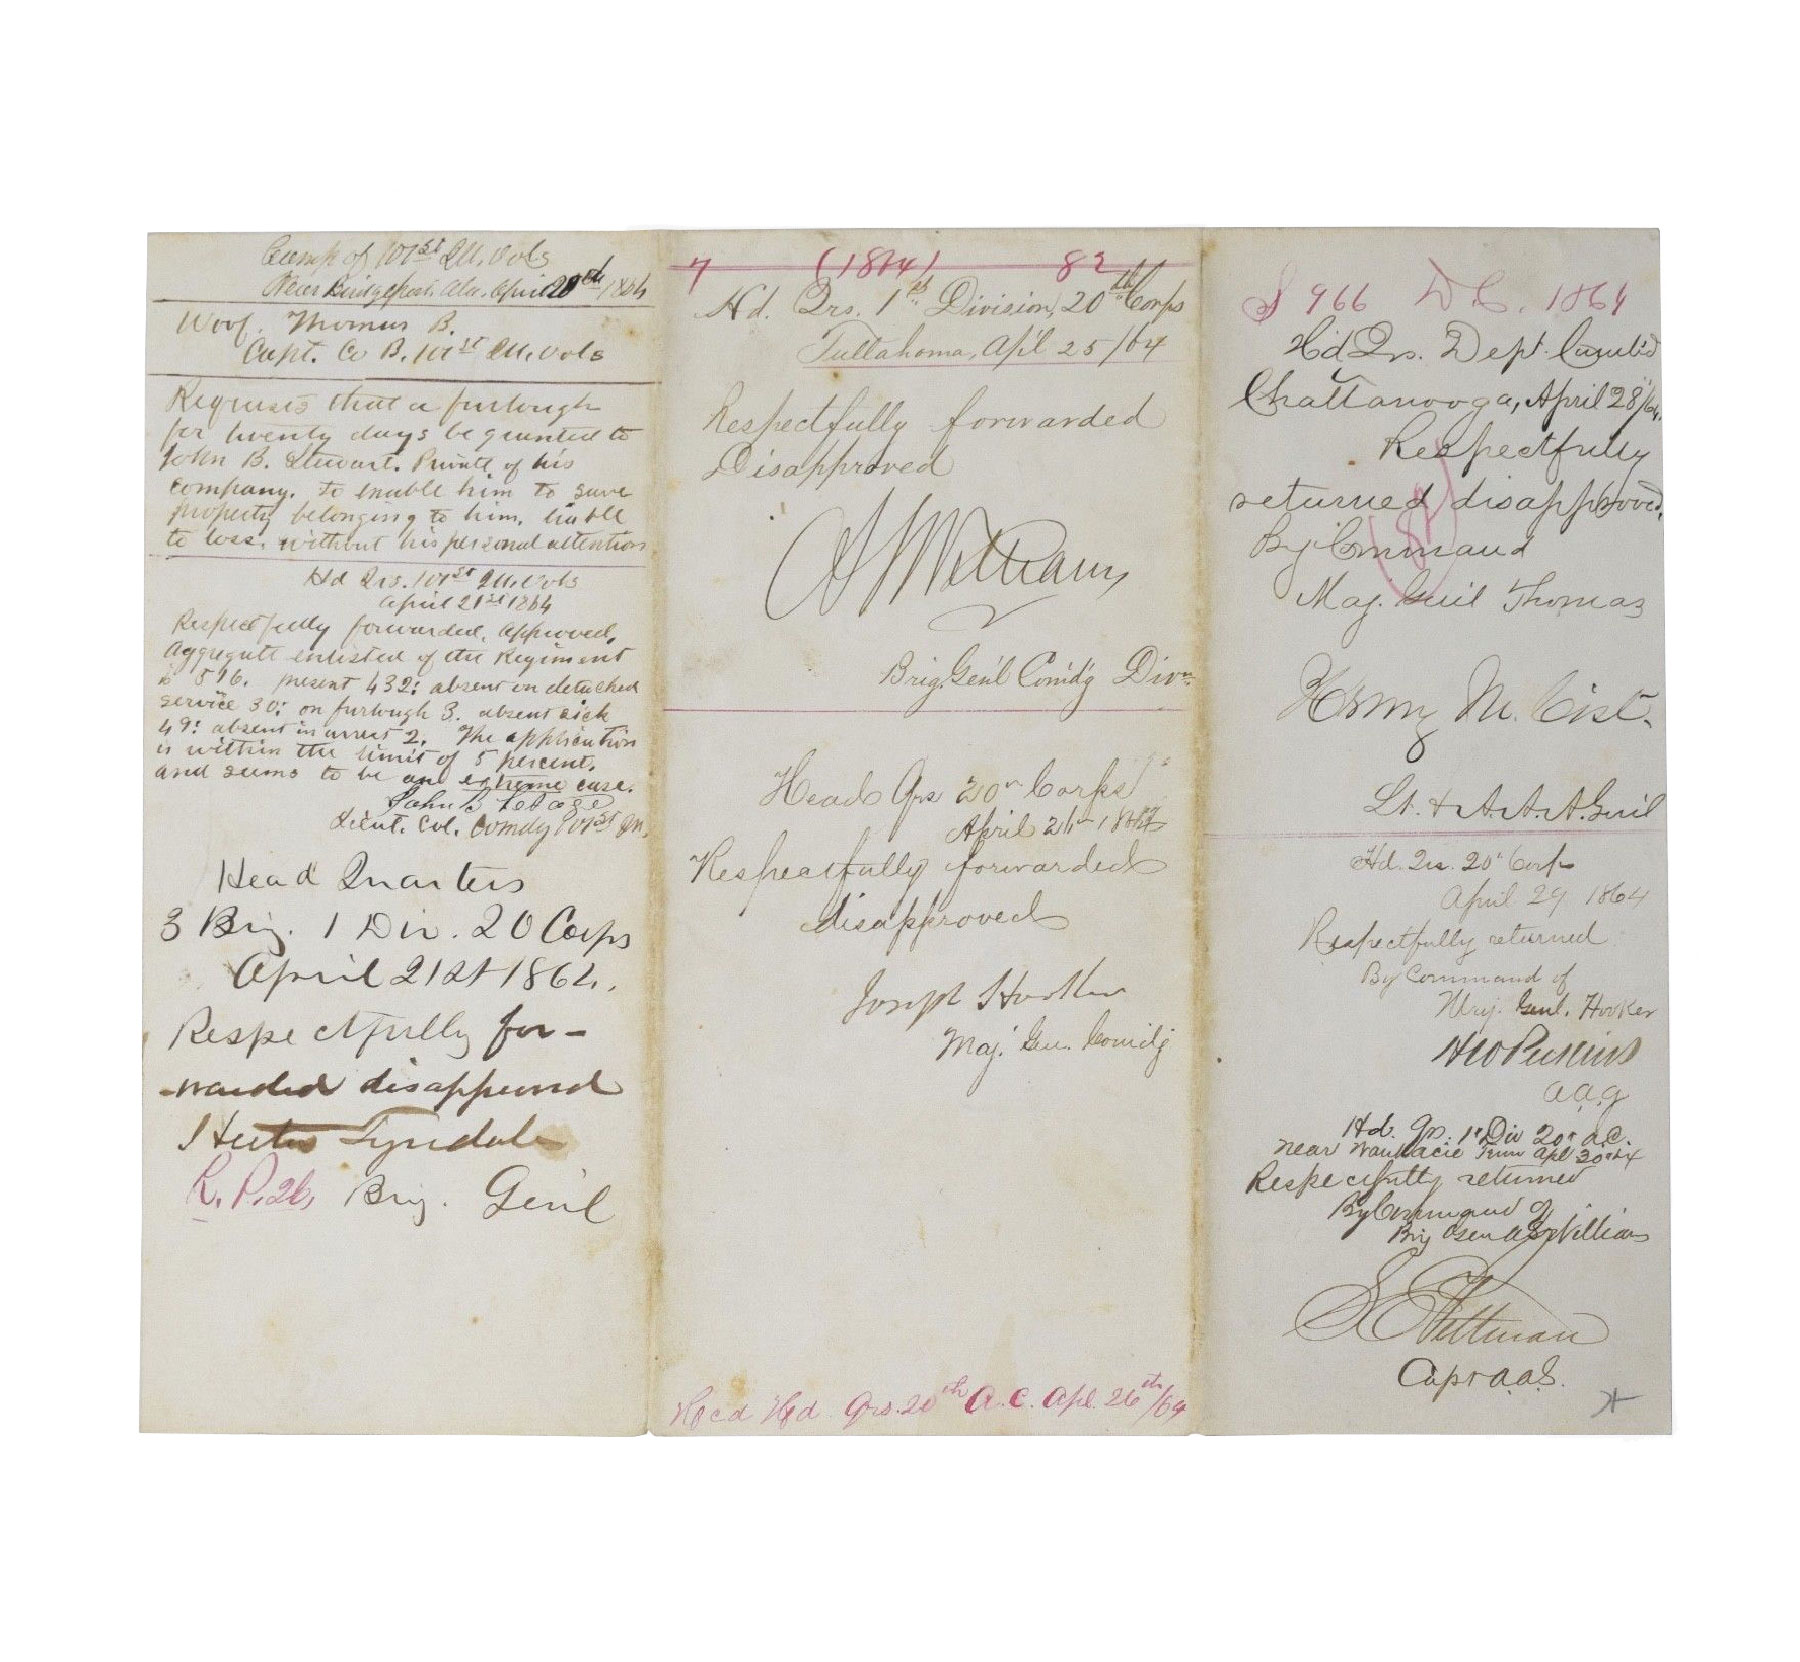 Camp of 101st Ill. Vols
Near Bridgeport, Ala. April 20th 1864
Woof. Thomas B.
Capt. Co B. 101st Ill. Vols
Requests that a furlough
for twenty days be granted to
John B. Stewart. Private of his
company. to enable him to save
property belonging to him, liable
to loss, without his personal attention
Hd Qrs. 101st Ill. Vols
April 21st 1864
Respectfully forwarded, approved.
Aggregate enlisted of the Regiment
is 516. present 432: absent on detached
service 30: on furlough 3. absent sick
49: absent in arrest 2. The application
is within the limit of 5 percent.
and seems to be an extreme case.
John B LeSage
Lieut. Col. Comdg 101st Ill.
Head Quarters
3 Brig. 1 Div. 20 Corps
April 21st 1864.
Respectfully for-
-warded disapproved
Hector Tyndale
R. P. 26, Brig. Genl
7 (1864) 82
Hd. Qrs. 1st Division, 20th Corps
Tullahoma, Apl 25/64
Respectfully forwarded
Disapproved
A S Williams
Brig. Genl Comdg Divn
Head Qrs 20th Corps
April 26th 1864
Respectfully forwarded
disapproved
Joseph Hooker
Maj. Gen. Comdg
Recd Hd Qrs. 20th A. C. Apl. 26th/64
S 966 D. C. 1864
Hd Qrs. Dept. Cumbld
Chattanooga, April 28/64.
Respectfully
returned disapproved.
By Command
Maj. Genl Thomas
Henry M. Cist.
Lt. & A.A.A. Genl
Hd. Qrs. 20th Corps
April 29 1864
Respectfully returned
By Command of
Maj. Genl. Hooker
H W Perkins
a.a.g
Hd. Qrs. 1st Div 20th A.C.
near Wauhatchie Tenn Apl 30th 64
Respectfully returned
By Command of
Brig Gen A S Williams
S E Pittman
Capt a.a.g.